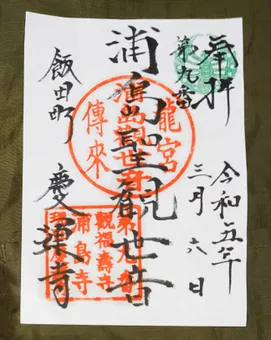 奉拝
第九番
令和五年
三月六日
浦島聖観世音
飯田町 慶運寺
龍宮
傳來
浦島観世音
第九番
観福壽寺
浦島寺